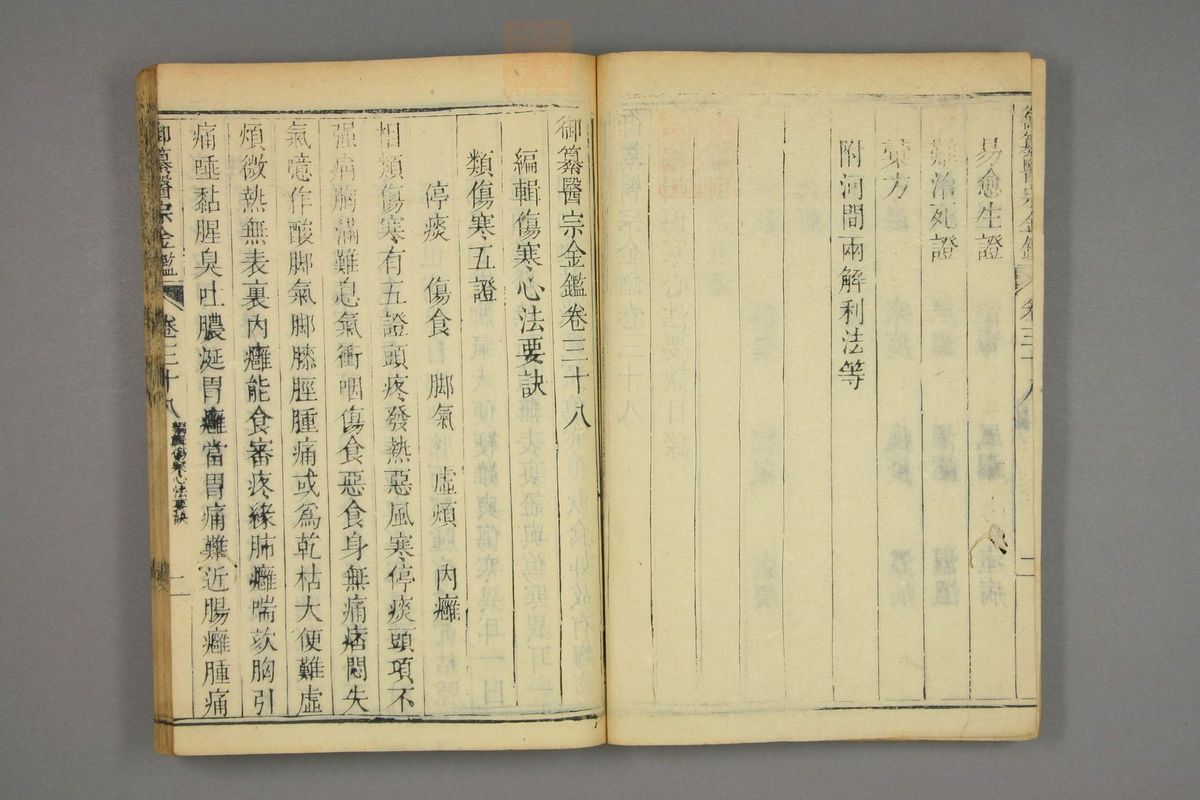 御纂醫宗金鑑 卷三十八 一
易愈生證
難治死證
彙方
附河間兩解利法等
御纂醫宗金鑑卷三十八
編輯傷寒心法要訣
類傷寒五證
停痰 傷食 脚氣 虛煩 內癰
相類傷寒有五證頭疼發熱惡風寒停痰頭項不
强痛胸滿難息氣衝咽傷食惡食身無痛痞悶失
氣噫作酸脚氣脚膝脛腫痛或爲乾枯大便難虛
煩微熱無表裏內癰能食審疼緣肺癰喘欬胸引
痛唾黏腥臭吐膿涎胃癰當胃痛難近腸癰腫痛
御纂醫宗金鑑 卷三十八 編輯傷寒心法要訣 一